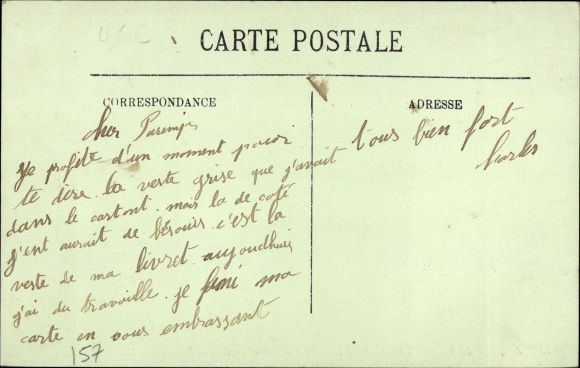 456
CARTE POSTALE
CORRESPONDANCE
ADRESSE
cher
Je profite d'un moment pour
te dire la veste grise que j'avait
dans le cartont mais la de coté
j'ent aurait de bésouis c'est la
veste de ma livret aujoudhui
j'ai du travaille je fini ma
carte en vous embrassant
tous bien fort
157